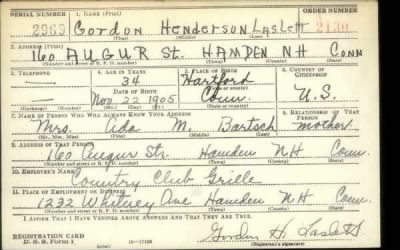 SERIAL NUMBER 1. NAME (Print) ORDER NUMBER
2969 Gordon Henderson Laslett 2130
(First) (Middle) (Last)
2. ADDRESS (Print)
160 AUGUR St. HAMDEN NH CONN
(Number and street or R. F. D. number) (Town) (County) (State)
3. TELEPHONE 4. AGE IN YEARS 5. PLACE OF BIRTH 6. COUNTRY OF CITIZENSHIP
— 34 Hartford
DATE OF BIRTH (Town or county)
— Nov. 22 1905 Conn. U.S.
(Exchange) (No.) (Mo.) (Day) (Yr.) (State or country)
7. NAME OF PERSON WHO WILL ALWAYS KNOW YOUR ADDRESS 8. RELATIONSHIP OF THAT PERSON
Mrs. Ada M. Bartsch mother
(Mr., Mrs., Miss) (First) (Middle) (Last)
9. ADDRESS OF THAT PERSON
160 Augur Str. Hamden NH Conn.
(Number and street or R. F. D. number) (Town) (County) (State)
10. EMPLOYER'S NAME
Country Club Grille
11. PLACE OF EMPLOYMENT OR BUSINESS
1232 Whitney Ave Hamden NH Conn.
(Number and street or R. F. D. number) (Town) (County) (State)
I AFFIRM THAT I HAVE VERIFIED ABOVE ANSWERS AND THAT THEY ARE TRUE.
REGISTRATION CARD
D. S. S. Form 1 Gordon H. Laslett
(Registrant's signature)